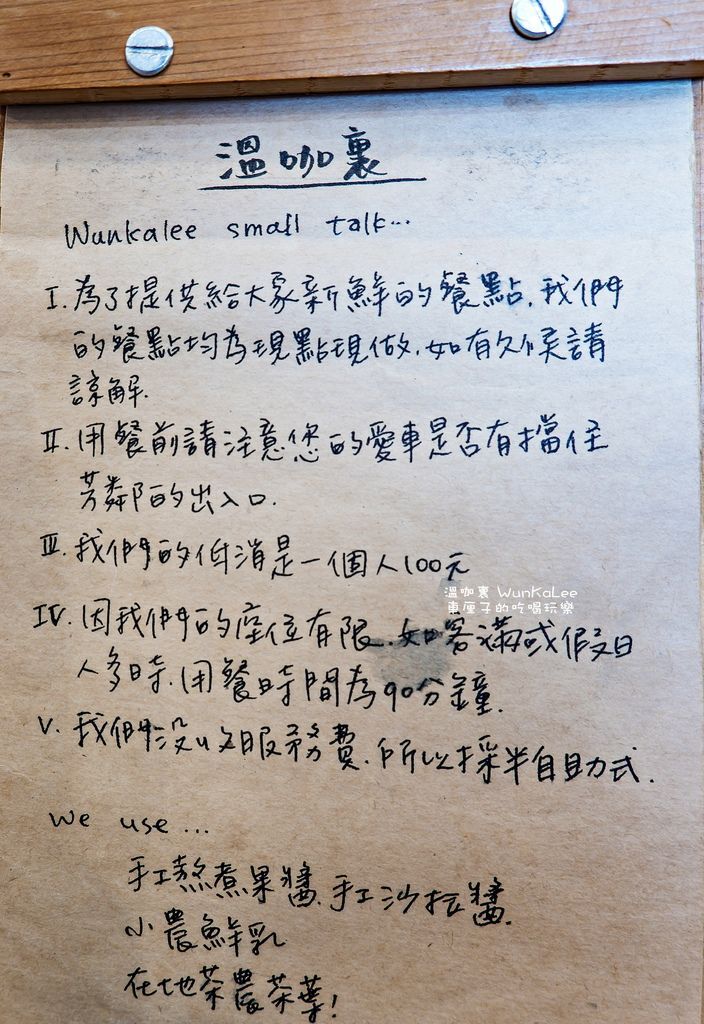 溫咖裏
Wunkalee small talk...
I. 為了提供給大家新鮮的餐點, 我們
的餐點均為現點現做, 如有久候請
諒解.
II. 用餐前請注意您的愛車是否有擋住
芳鄰的出入口.
III. 我們的低消是一個人100元
溫咖裏 WunKaLee
東厘子的吃喝玩樂
IV. 因我們的座位有限, 如客滿或假日
人多時, 用餐時間為90分鐘.
V. 我們沒收服務費, 所以採半自助式.
we use...
手工熬煮果醬, 手工沙拉醬.
小農鮮乳
在地茶農茶葉!